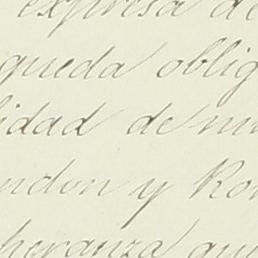 expresa de
queda oblig
lidad de nu
ndon y Ro
peranza que